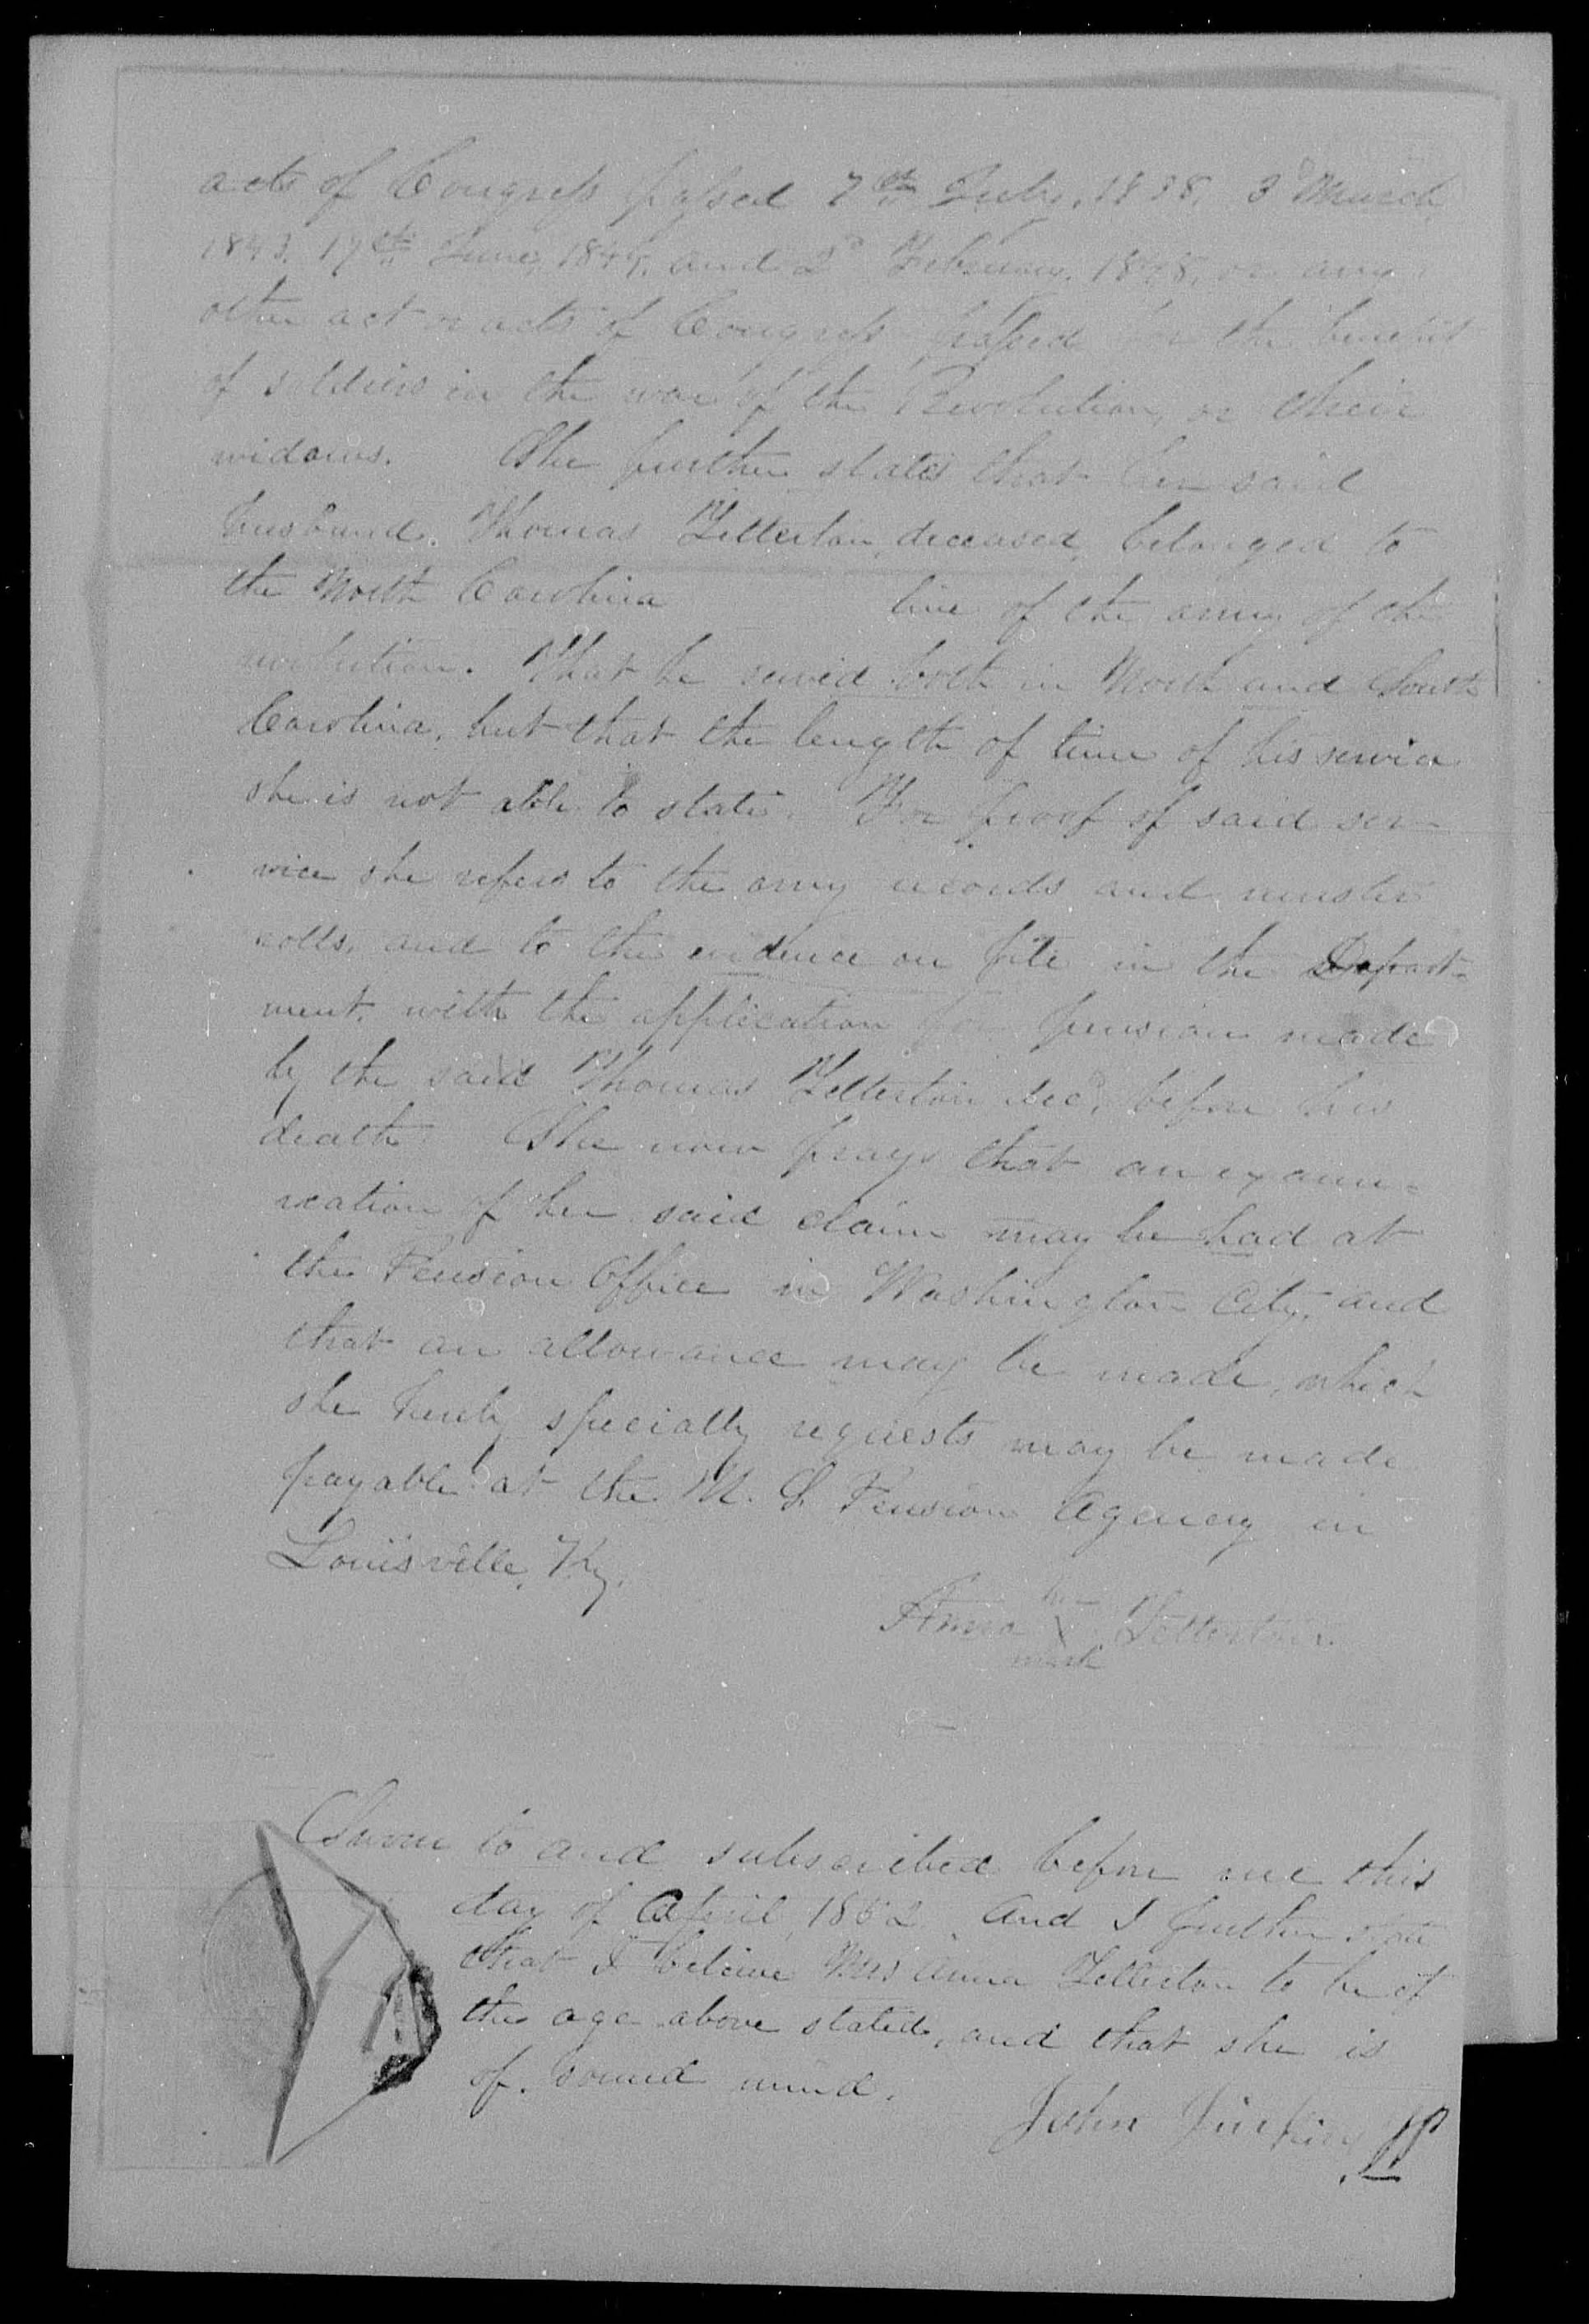 acts of Congress passed 7th July, 1838, 3d March
1843, 17th June, 1844, and 2d February, 1848, or any
other act or acts of Congress passed for the benefit
of soldiers in the war of the Revolution, or their
widows. She further states that her said
husband, Thomas Tetterton, deceased, belonged to
the North Carolina line of the army of the
revolution. That he served both in North and South
Carolina, but that the length of time of his service
she is not able to state. For proof of said ser-
vice she refers to the army records and muster
rolls, and to the evidence on file in the Depart-
ment, with the application for pension made
by the said Thomas Tetterton decd, before his
death. She now prays that an exami-
nation of her said claim may be had at
the Pension Office in Washington City, and
that an allowance may be made, which
she hereby specially requests may be made
payable at the U. S. Pension Agency in
Louisville, Ky.
her
Anna X Tetterton
mark
Sworn to and subscribed before me this
day of April, 1852. And I further state
that I believe Mrs Anna Tetterton to be of
the age above stated, and that she is
of sound mind.
John JP